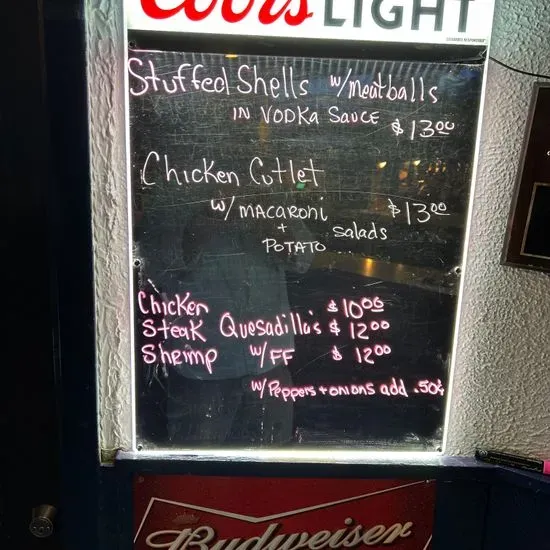 Coors LIGHT
Stuffed Shells w/meatballs
IN VODKA SAUCE $13.00
Chicken Cutlet
w/ MACARONI $13.00
+ Salads
POTATO
Chicken $10.00
Steak Quesadilla's $12.00
Shrimp w/FF $12.00
w/Peppers + onions add .50¢
Budweiser